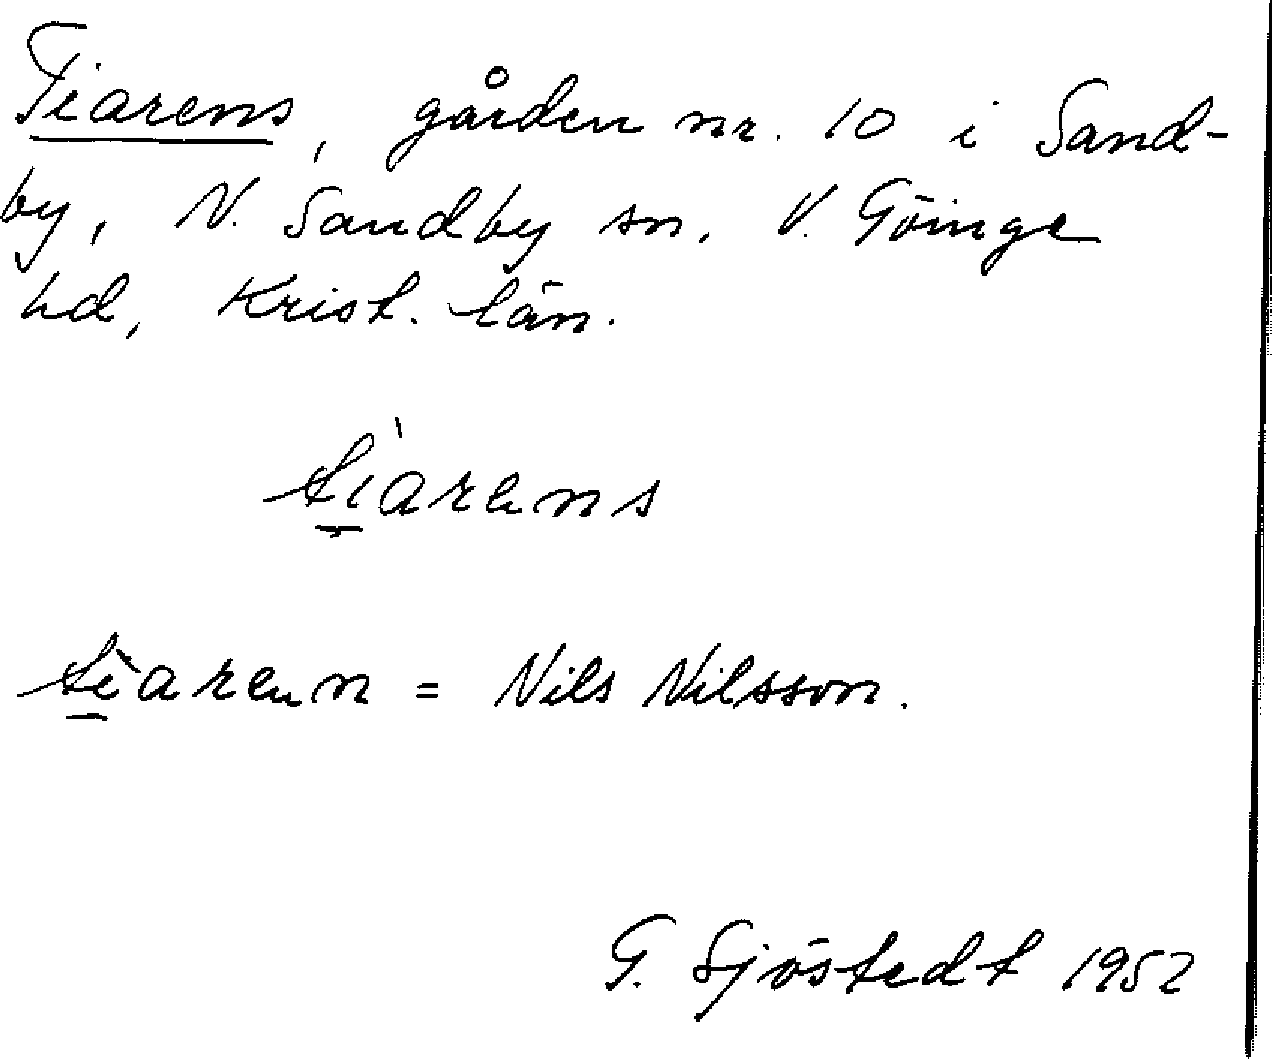 Tiarens, gården nr. 10 i Sand-
by, N. Sandby sn, V. Göinge
hd, Krist. län.
tìarens
tìaren = Nils Nilsson.
G. Sjöstedt 1952